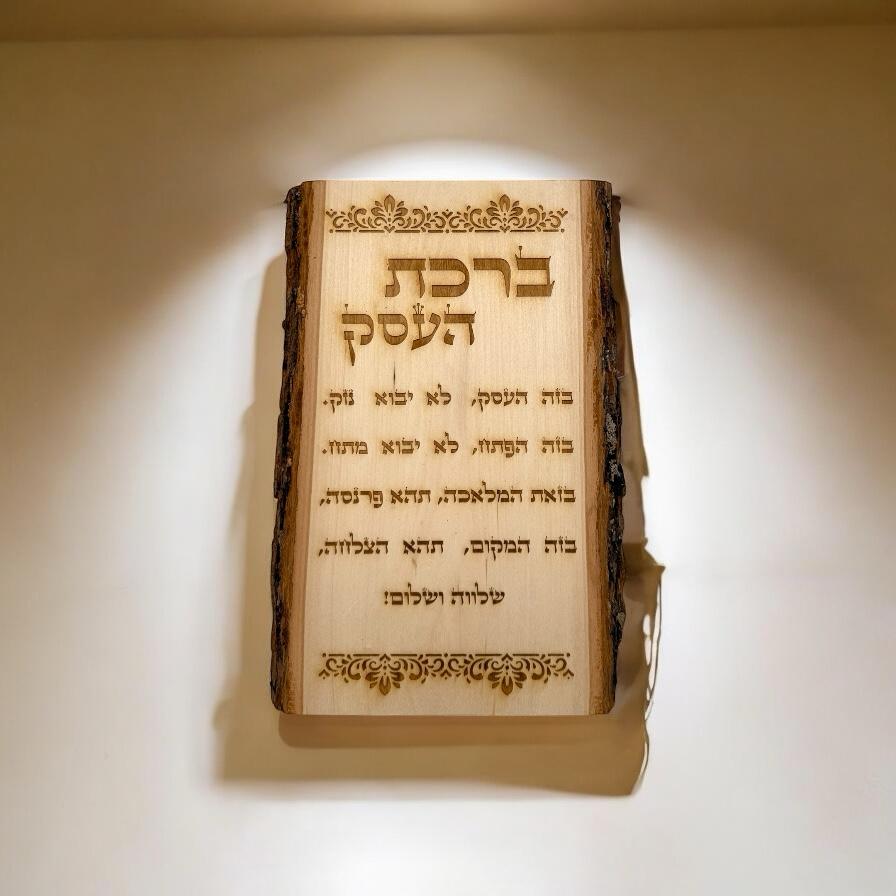 ברכת
העסק
בזה העסק, לא יבוא נזק.
בזה הפתח, לא יבוא מתח.
בזאת המלאכה, תהא פרנסה,
בזה המקום, תהא הצלחה,
שלווה ושלום!